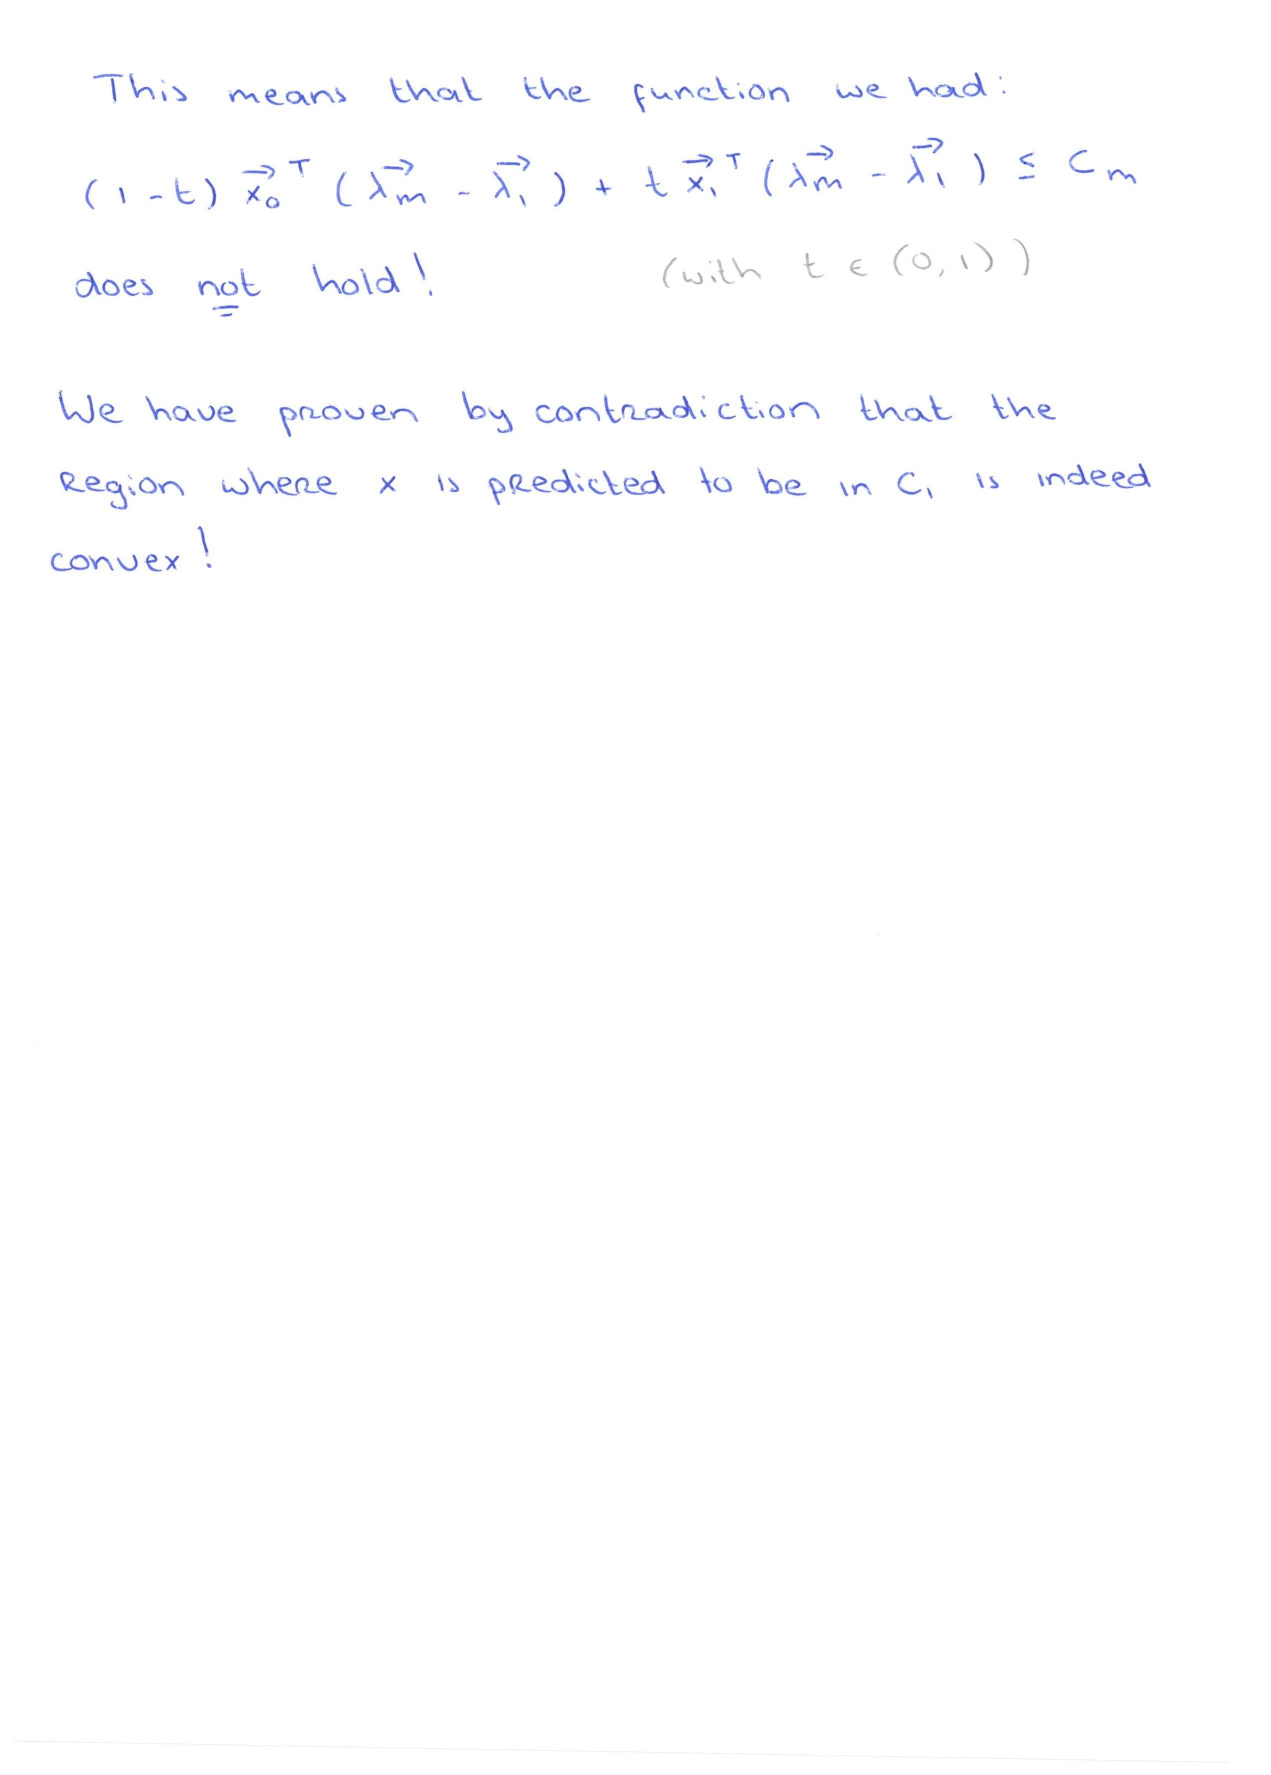 This means that the function we had:
(1-t) x⃗₀ᵀ (λ⃗m - λ⃗₁) + t x⃗₁ᵀ (λ⃗m - λ⃗₁) ≤ Cm
does not hold! (with t ∈ (0,1))
We have proven by contradiction that the
Region where x is predicted to be in C₁ is indeed
convex!